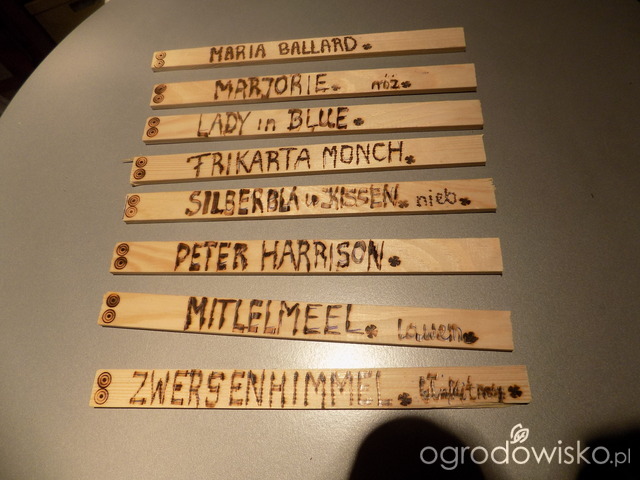 MARIA BALLARD.
MARJORIE. róż.
LADY in BLUE.
FRIKARTA MONCH.
SILBERBLAUKISSEN. nieb.
PETER HARRISON.
MITLELMEEL. lawen.
ZWERSENHIMMEL.
ogrodowisko.pl